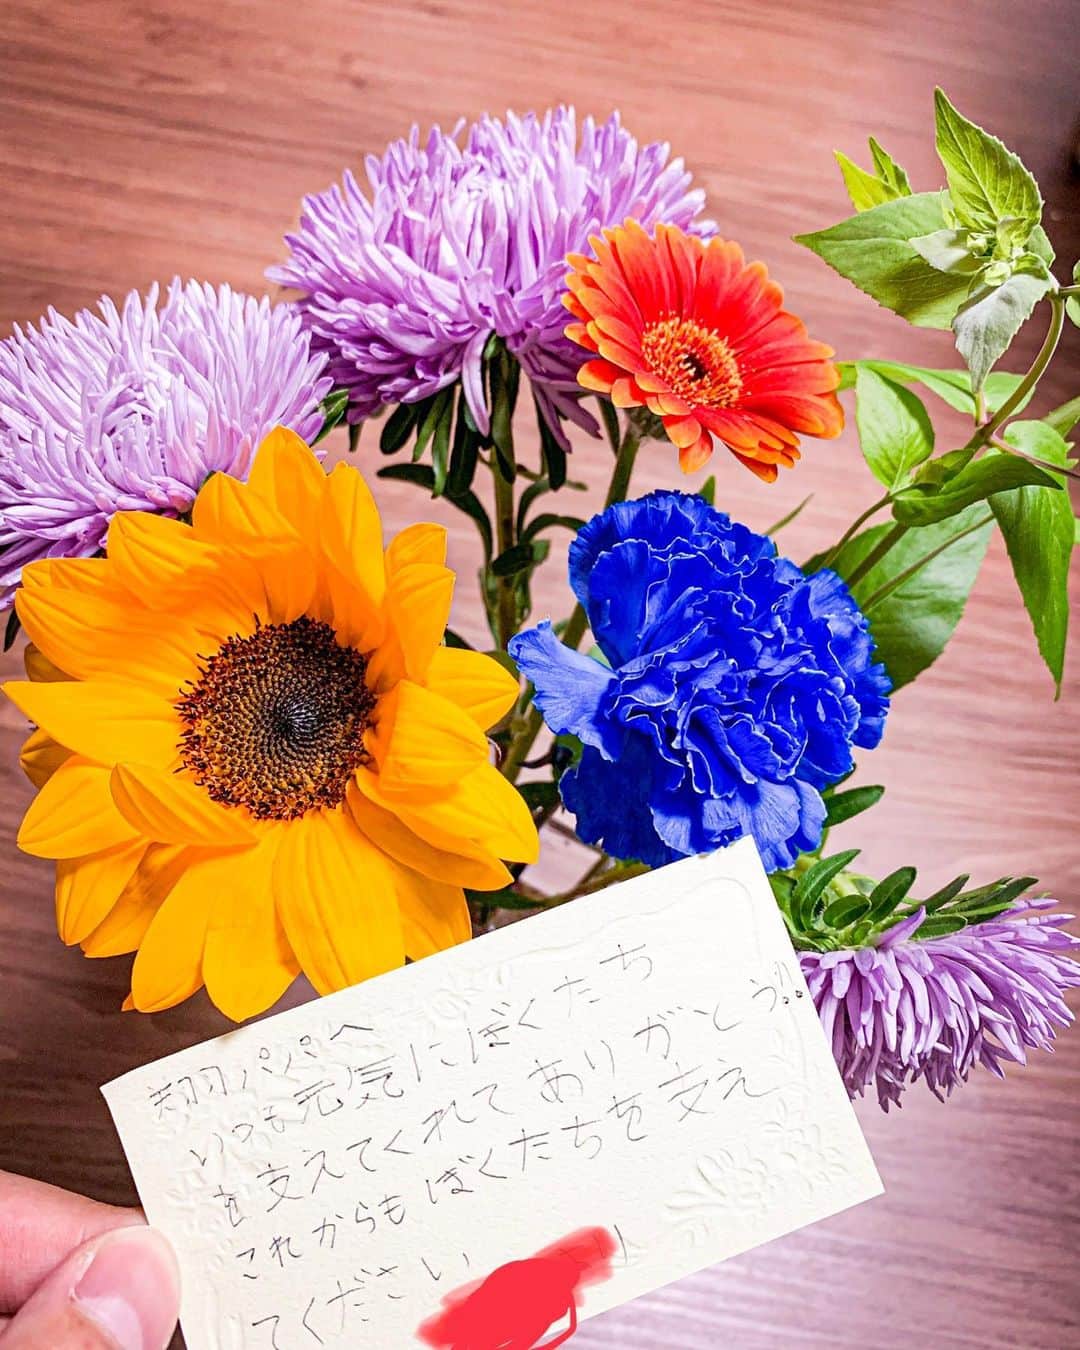 翔パパへ
いつも元気にぼくたち
を支えてくれてありがとう!!
これからもぼくたちを支え
てください